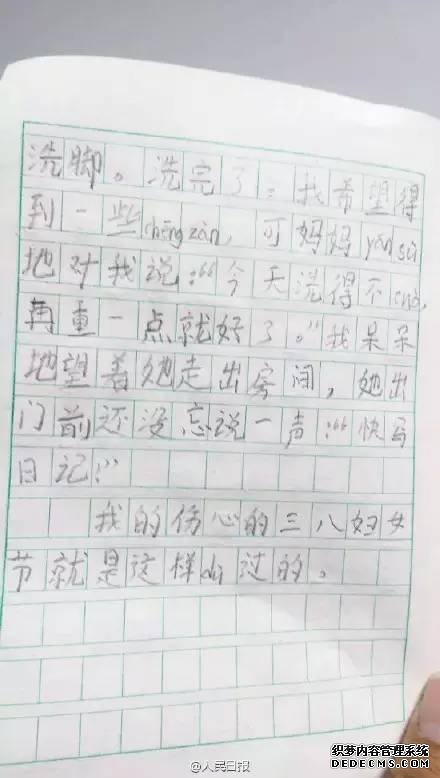 洗脚。洗完了，我希望得
到一些chēng zàn，可妈妈yán sù
地对我说：“今天洗得不cuò，
再重一点就好了。”我呆呆
地望着她走出房间，她出
门前还没忘说一声：“快写
日记！”
我的伤心的三八妇女
节就是这样dù过的。
@人民日报
织梦内容管理系统
DEDECMS.COM